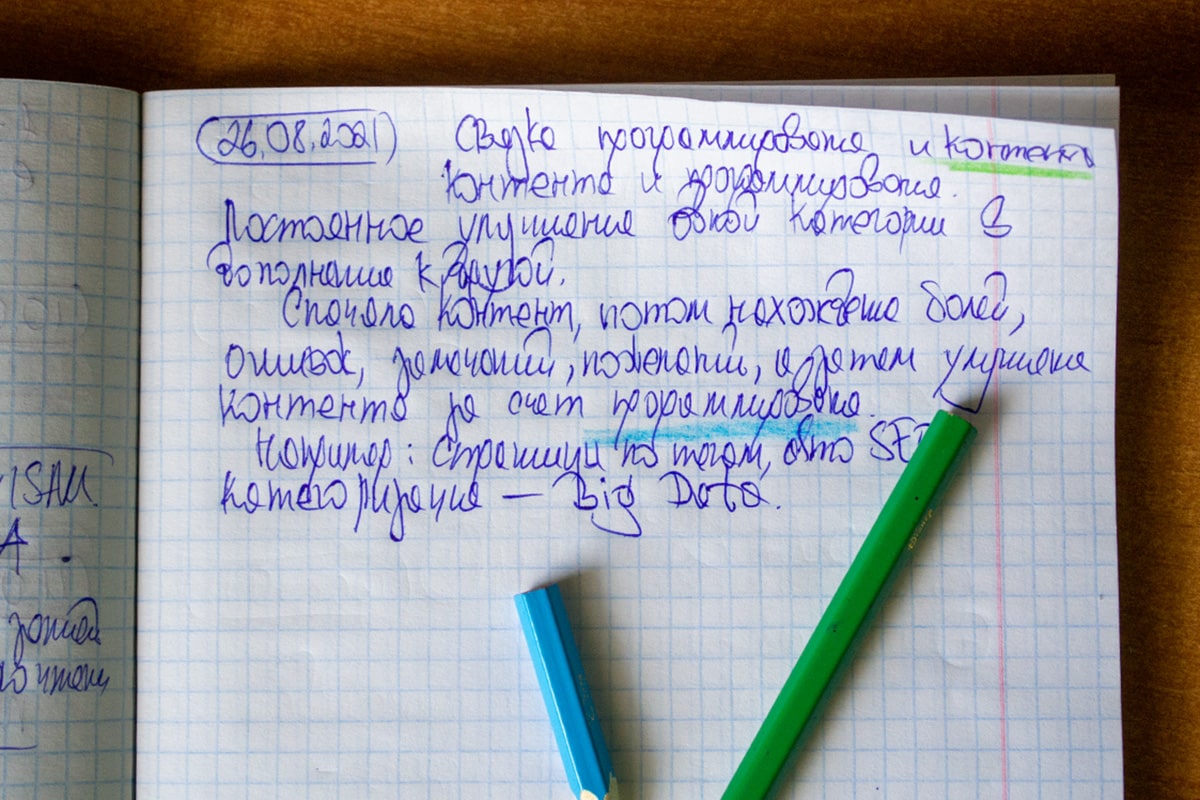 26.08.2021 Связка программирования и контента
контента и программирования.
Постоянное улучшение одной категории в
дополнение к другой.
Сначала контент, потом нахождение болей,
ошибок, замечаний, пожеланий, а затем улучшение
контента за счет программирования.
Например: страницы по тегам, авто SE
категоризация — Big Data.